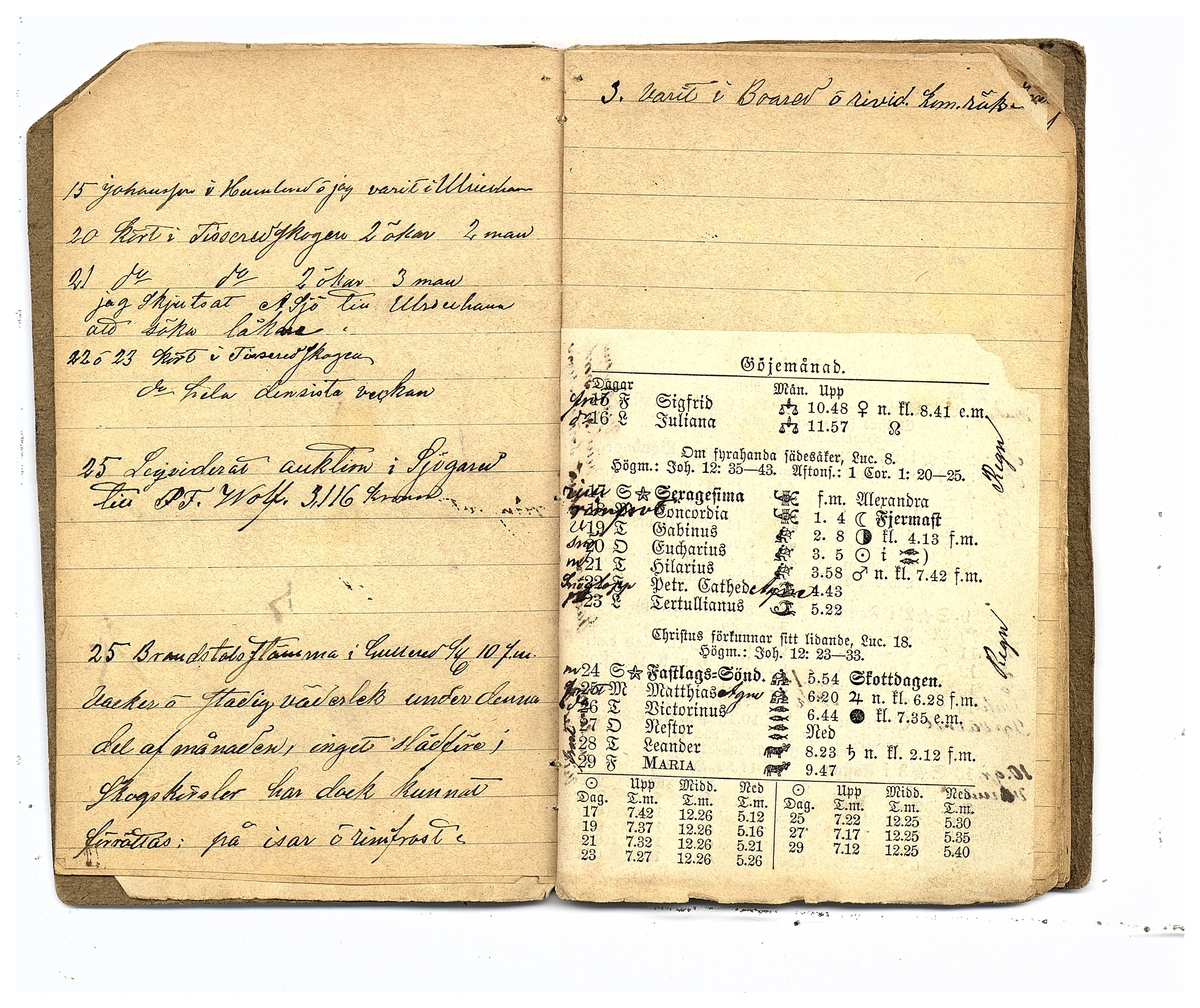 15 Johansson i Hemlend o jag varit i Ulricehamn
20 Kört i Tissered skogen 2 ökar 2 man
21 do do 2 ökar 3 man
jag skjutsat A Sjö till Ulricehamn
att söka läkare
22 o 23 Kört i Tissered skogen
do hela den sista veckan
25 Leqviderat auktion i Sjögared
till P.F. Wolf. 3,116 kronor
25 Brandstodsstämma i Gullered 10 f.m.
Vacker o stadig väderlek under denna
del af månaden, inget slädföre;
Skogskörslor har dock kunnat
förrättas; på isar o rimfrost
3. Varit i Boared o rivid. kom.räk
Göjemånad.
Dagar Mån. Upp
15 F Sigfrid 10.48 ♀ n. kl. 8.41 e.m.
16 L Juliana 11.57 ☊
Om fyrahanda sädesåker, Luc. 8.
Högm.: Joh. 12: 35—43. Aftons.: 1 Cor. 1: 20—25.
Regn
17 S ☆ Sexagesima f.m. Alexandra
Concordia 1. 4 ☾ Fjermast
19 T Gabinus 2. 8 ◑ kl. 4.13 f.m.
20 O Eucharius 3. 5 ☉ i ♓)
21 T Hilarius 3.58 ♂ n. kl. 7.42 f.m.
22 F Petr. Cathed 4.43
23 L Tertullianus 5.22
Christus förkunnar sitt lidande, Luc. 18.
Högm.: Joh. 12: 23—33.
Regn
24 S ☆ Fastlags-Sönd. 5.54 Skottdagen.
25 M Matthias 6.20 ♃ n. kl. 6.28 f.m.
26 T Victorinus 6.44 ● kl. 7.35 e.m.
27 O Nestor Ned
28 T Leander 8.23 ♄ n. kl. 2.12 f.m.
29 F MARIA 9.47
☉ Upp Midd. Ned ☉ Upp Midd. Ned
Dag. T.m. T.m. T.m. Dag. T.m. T.m. T.m.
17 7.42 12.26 5.12 25 7.22 12.25 5.30
19 7.37 12.26 5.16 27 7.17 12.25 5.35
21 7.32 12.26 5.21 29 7.12 12.25 5.40
23 7.27 12.26 5.26